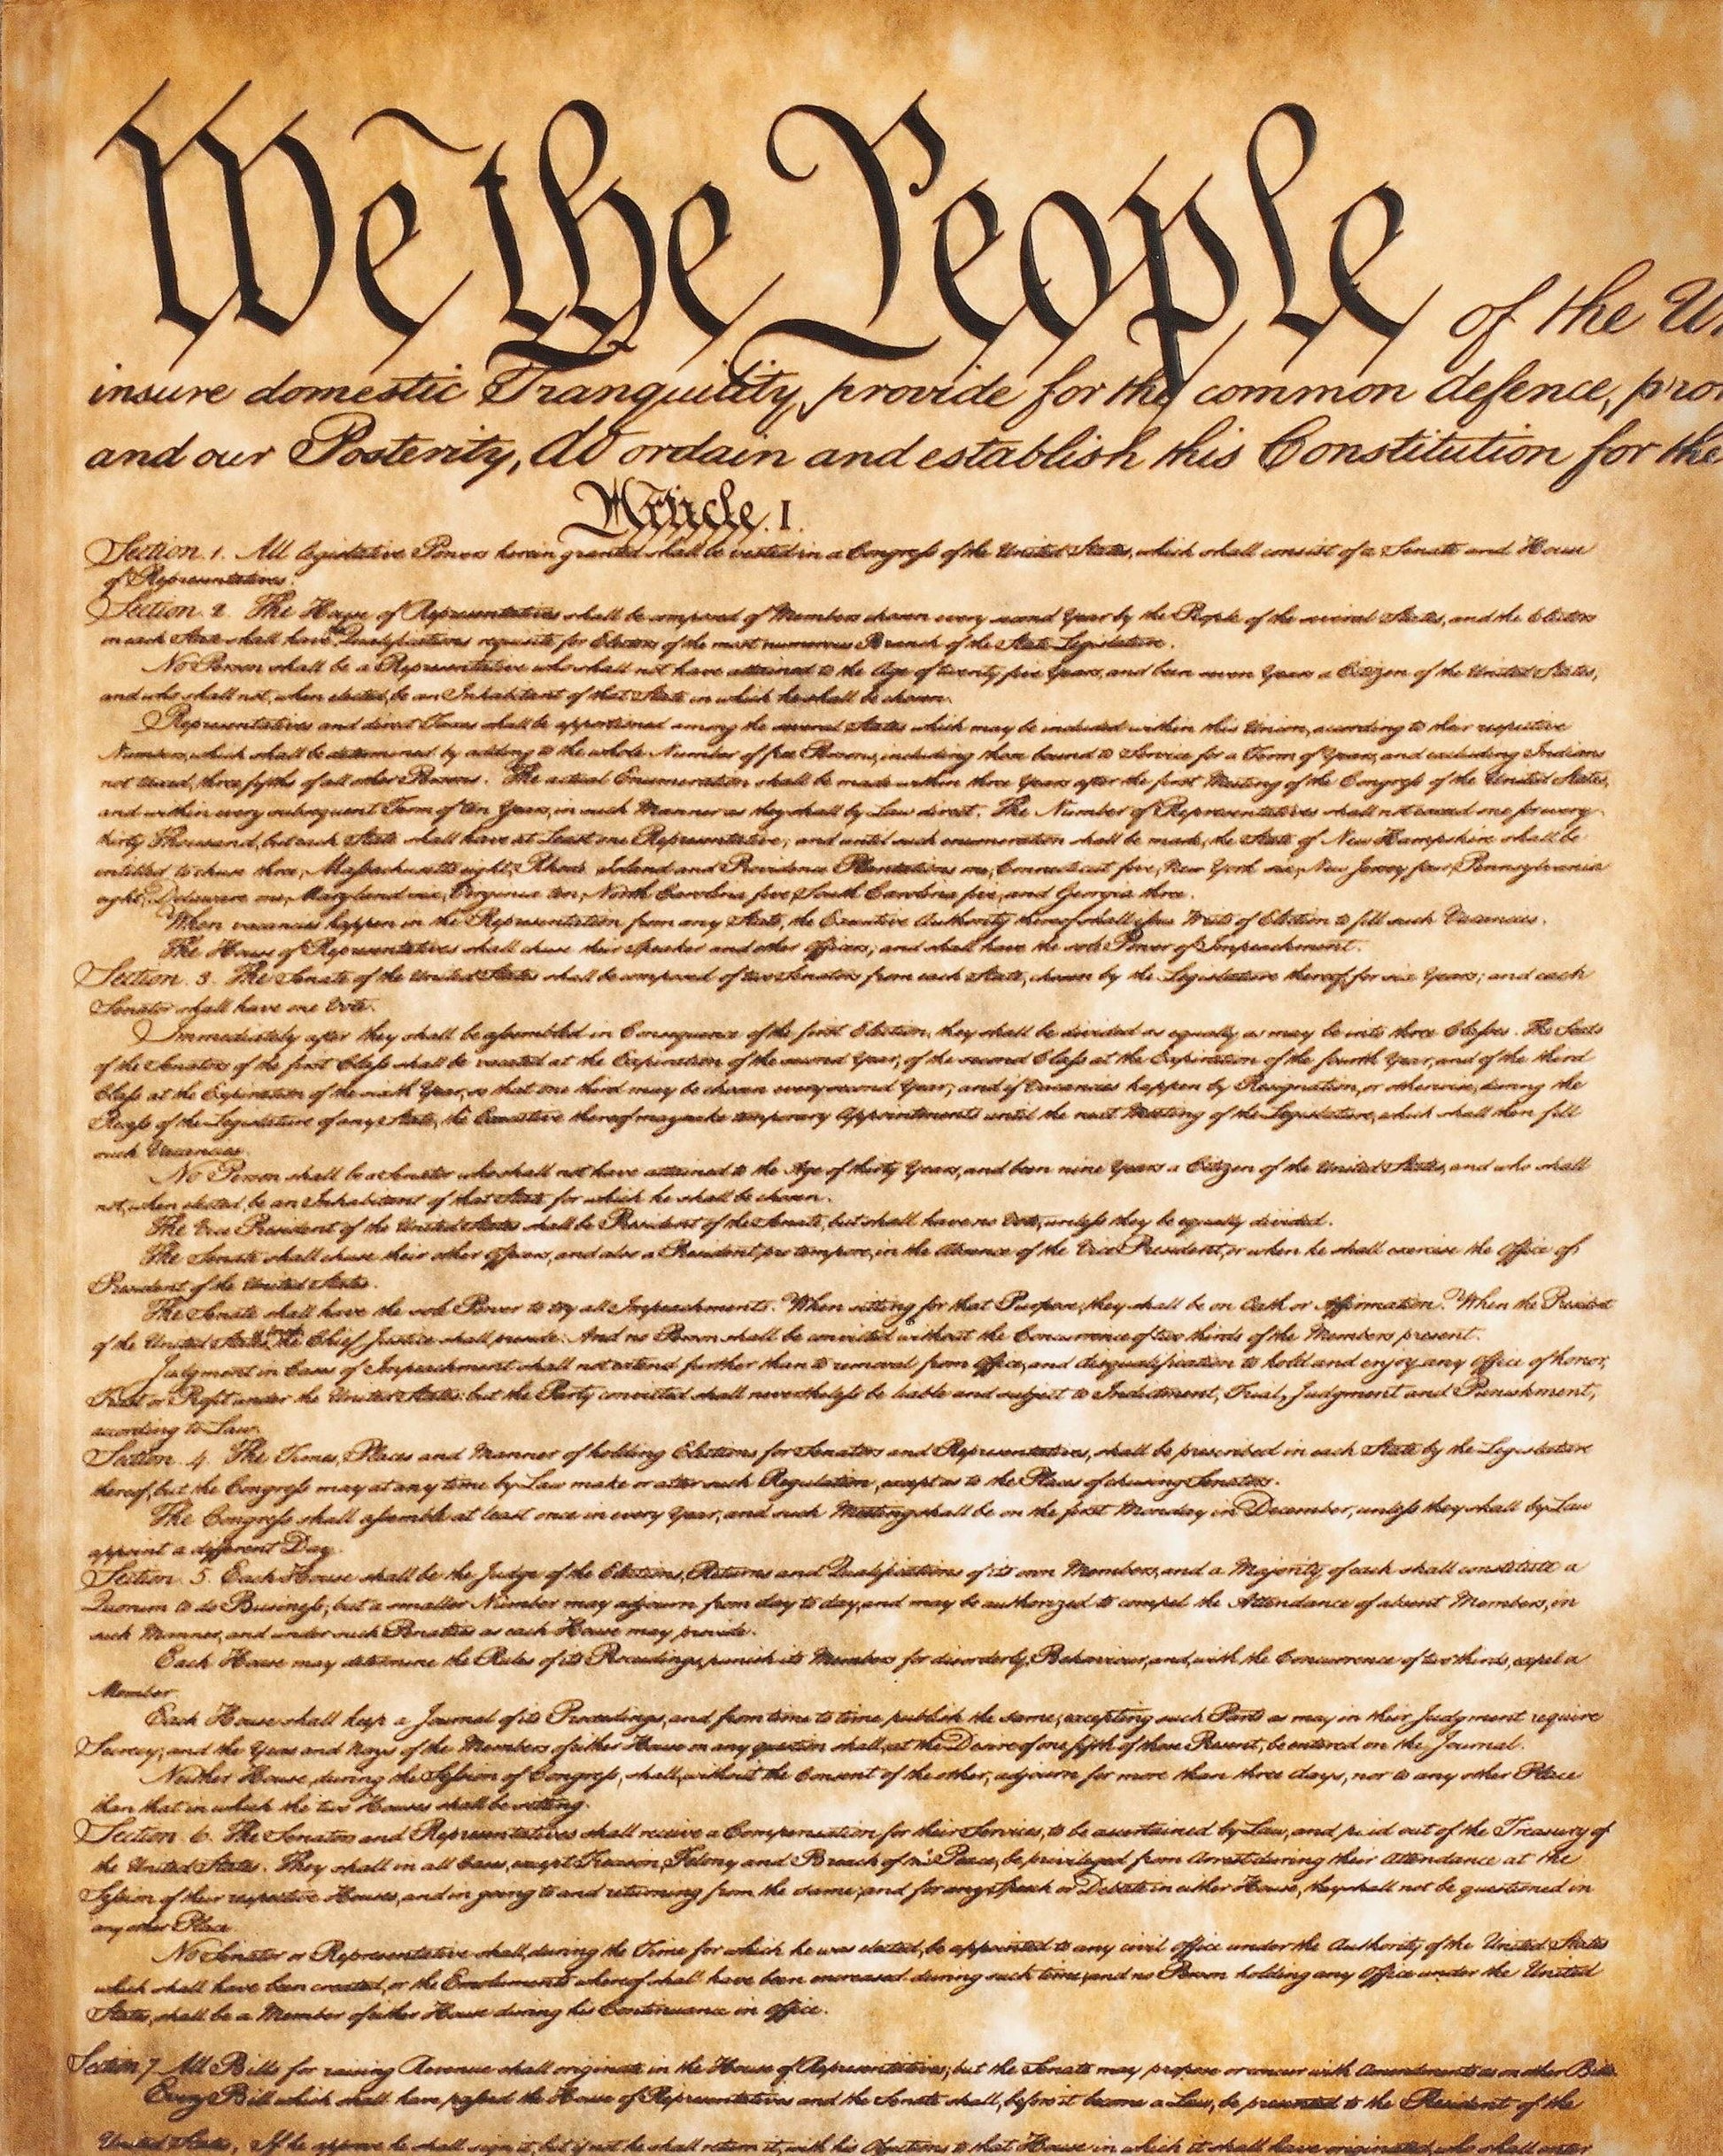 We the People of the Un
insure domestic Tranquility, provide for the common defence, pro
and our Posterity, do ordain and establish this Constitution for the
Article. I.
Section. 1. All legislative Powers herein granted shall be vested in a Congress of the United States, which shall consist of a Senate and House
of Representatives.
Section. 2. The House of Representatives shall be composed of Members chosen every second Year by the People of the several States, and the Electors
in each State shall have the Qualifications requisite for Electors of the most numerous Branch of the State Legislature.
No Person shall be a Representative who shall not have attained to the Age of twenty five Years, and been seven Years a Citizen of the United States,
and who shall not, when elected, be an Inhabitant of that State in which he shall be chosen.
Representatives and direct Taxes shall be apportioned among the several States which may be included within this Union, according to their respective
Numbers, which shall be determined by adding to the whole Number of free Persons, including those bound to Service for a Term of Years, and excluding Indians
not taxed, three fifths of all other Persons. The actual Enumeration shall be made within three Years after the first Meeting of the Congress of the United States,
and within every subsequent Term of ten Years, in such Manner as they shall by Law direct. The Number of Representatives shall not exceed one for every
thirty Thousand, but each State shall have at Least one Representative; and until such enumeration shall be made, the State of New Hampshire shall be
entitled to chuse three, Massachusetts eight, Rhode Island and Providence Plantations one, Connecticut five, New York six, New Jersey four, Pennsylvania
eight, Delaware one, Maryland six, Virginia ten, North Carolina five, South Carolina five, and Georgia three.
When vacancies happen in the Representation from any State, the Executive Authority thereof shall issue Writs of Election to fill such Vacancies.
The House of Representatives shall chuse their Speaker and other Officers; and shall have the sole Power of Impeachment.
Section. 3. The Senate of the United States shall be composed of two Senators from each State, chosen by the Legislature thereof, for six Years; and each
Senator shall have one Vote.
Immediately after they shall be assembled in Consequence of the first Election, they shall be divided as equally as may be into three Classes. The Seats
of the Senators of the first Class shall be vacated at the Expiration of the second Year, of the second Class at the Expiration of the fourth Year, and of the third
Class at the Expiration of the sixth Year, so that one third may be chosen every second Year; and if Vacancies happen by Resignation, or otherwise, during the
Recess of the Legislature of any State, the Executive thereof may make temporary Appointments until the next Meeting of the Legislature, which shall then fill
such Vacancies.
No Person shall be a Senator who shall not have attained to the Age of thirty Years, and been nine Years a Citizen of the United States, and who shall
not, when elected, be an Inhabitant of that State for which he shall be chosen.
The Vice President of the United States shall be President of the Senate, but shall have no Vote, unless they be equally divided.
The Senate shall chuse their other Officers, and also a President pro tempore, in the Absence of the Vice President, or when he shall exercise the Office of
President of the United States.
The Senate shall have the sole Power to try all Impeachments. When sitting for that Purpose, they shall be on Oath or Affirmation. When the President
of the United States is tried, the Chief Justice shall preside: And no Person shall be convicted without the Concurrence of two thirds of the Members present.
Judgment in Cases of Impeachment shall not extend further than to removal from Office, and disqualification to hold and enjoy any Office of honor,
Trust or Profit under the United States: but the Party convicted shall nevertheless be liable and subject to Indictment, Trial, Judgment and Punishment,
according to Law.
Section. 4. The Times, Places and Manner of holding Elections for Senators and Representatives, shall be prescribed in each State by the Legislature
thereof; but the Congress may at any time by Law make or alter such Regulation, except as to the Places of chusing Senators.
The Congress shall assemble at least once in every Year, and such Meeting shall be on the first Monday in December, unless they shall by Law
appoint a different Day.
Section. 5. Each House shall be the Judge of the Elections, Returns and Qualifications of its own Members, and a Majority of each shall constitute a
Quorum to do Business; but a smaller Number may adjourn from day to day, and may be authorized to compel the Attendance of absent Members, in
such Manner, and under such Penalties as each House may provide.
Each House may determine the Rules of its Proceedings, punish its Members for disorderly Behaviour, and, with the Concurrence of two thirds, expel a
Member.
Each House shall keep a Journal of its Proceedings, and from time to time publish the same, excepting such Parts as may in their Judgment require
Secrecy; and the Yeas and Nays of the Members of either House on any question shall, at the Desire of one fifth of those Present, be entered on the Journal.
Neither House, during the Session of Congress, shall, without the Consent of the other, adjourn for more than three days, nor to any other Place
than that in which the two Houses shall be sitting.
Section. 6. The Senators and Representatives shall receive a Compensation for their Services, to be ascertained by Law, and paid out of the Treasury of
the United States. They shall in all Cases, except Treason, Felony and Breach of the Peace, be privileged from Arrest during their Attendance at the
Session of their respective Houses, and in going to and returning from the same; and for any Speech or Debate in either House, they shall not be questioned in
any other Place.
No Senator or Representative shall, during the Time for which he was elected, be appointed to any civil Office under the Authority of the United States
which shall have been created, or the Emoluments whereof shall have been encreased during such time; and no Person holding any Office under the United
States, shall be a Member of either House during his Continuance in Office.
Section 7. All Bills for raising Revenue shall originate in the House of Representatives; but the Senate may propose or concur with Amendments as on other Bills.
Every Bill which shall have passed the House of Representatives and the Senate shall, before it become a Law, be presented to the President of the
United States; If he approve he shall sign it, but if not he shall return it, with his Objections to that House in which it shall have originated, who shall enter